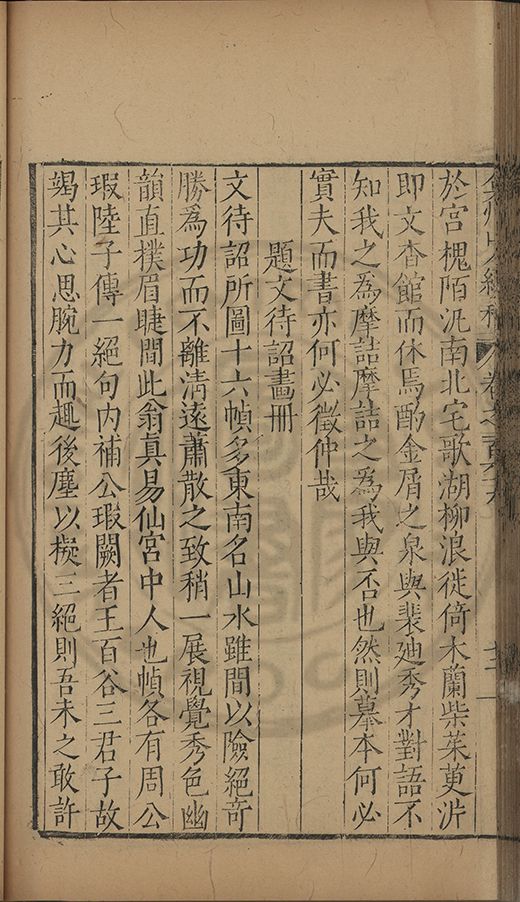 於宮槐陌汎南北宅歌湖柳浪徙倚木蘭柴茱萸沜
即文杏館而休焉酌金屑之泉與裴廸秀才對語不
知我之為摩詰摩詰之為我與否也然則摹本何必
實夫而書亦何必徵仲哉
題文待詔畫冊
文待詔所圖十六幀多東南名山水雖間以險絕奇
勝為功而不離清遠蕭散之致稍一展視覺秀色幽
韻直撲眉睫間此翁真易仙宮中人也幀各有周公
瑕陸子傳一絕句內補公瑕闕者王百谷三君子故
竭其心思腕力而趣後塵以擬三絕則吾未之敢許